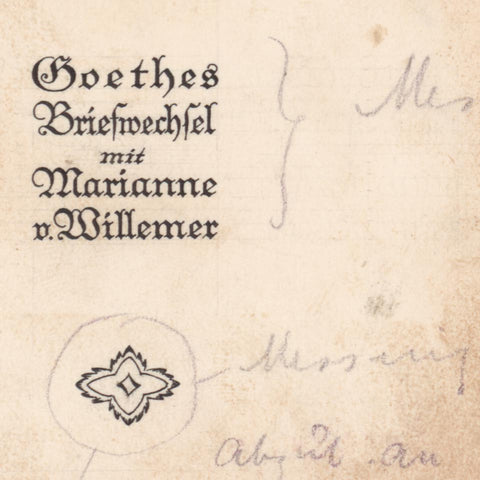 Goethes
Briefwechſel
mit
Marianne
v. Willemer
Mes
Messing
an